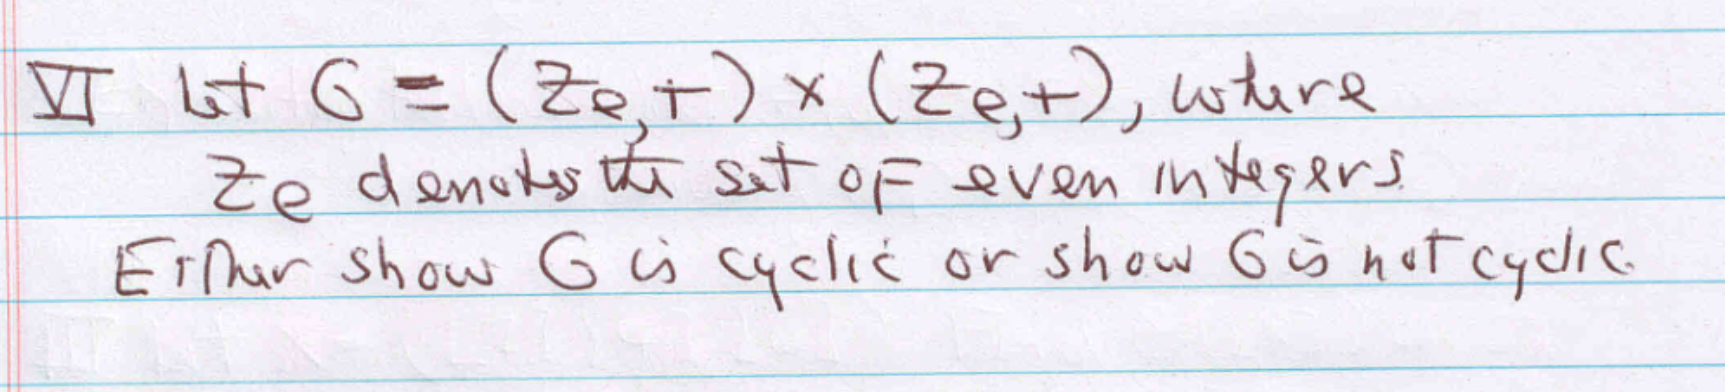 VI Let G = (Ze,+) × (Ze,+), where
Ze denotes the set of even integers.
Either show G is cyclic or show G is not cyclic.